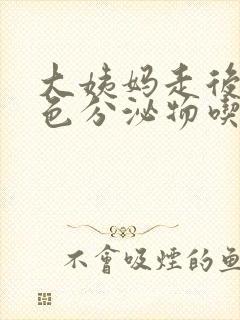 大姨妈走後
色分泌物喫
不會吸煙的魚